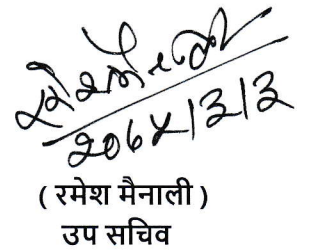 २०६५।३।३
( रमेश मैनाली )
उप सचिव